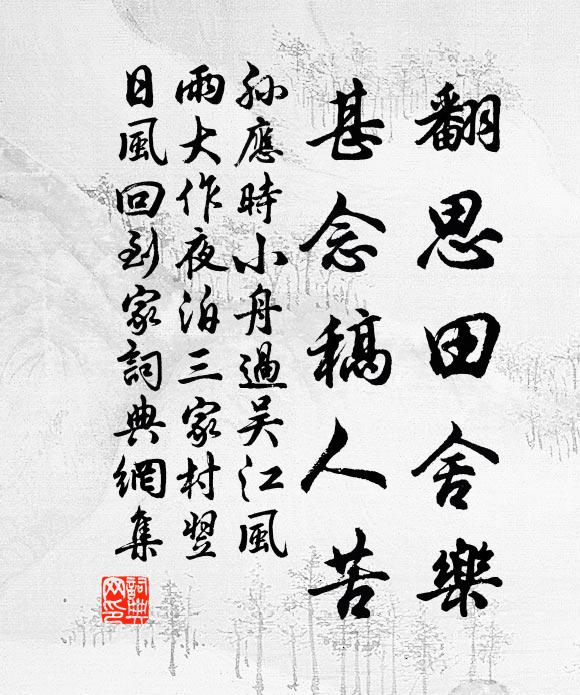 翻思田舍樂
甚念稿人苦
孫應時小舟過吴江風
雨大作夜泊三家村翌
日風回到家詞典網集
詞典网印